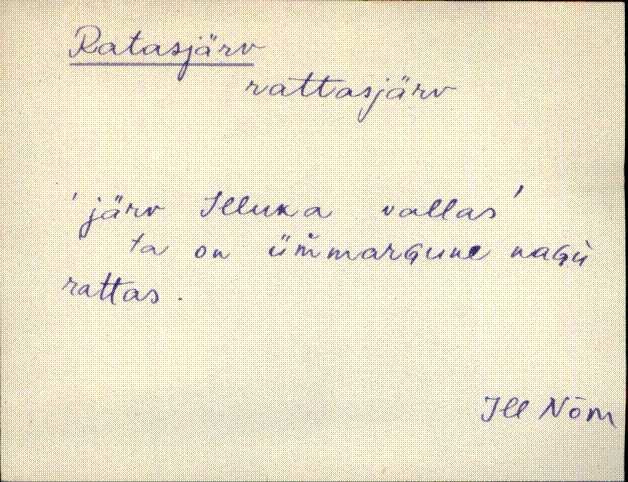 Ratasjärv
rattasjärv
'järv Illuka vallas'
ta on üm̆margune nagu
rattas.
Ill Nõm